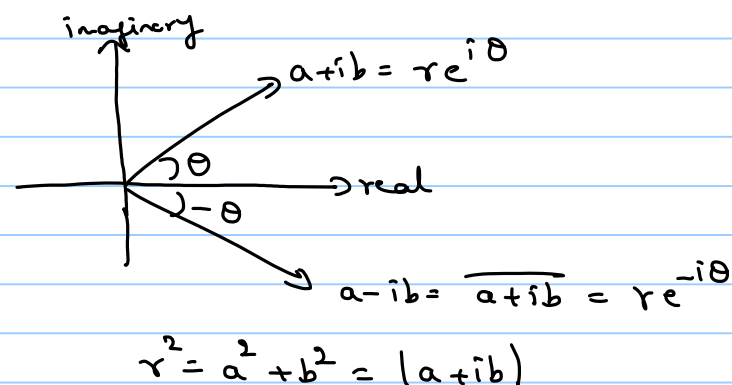 imaginary
a+ib = re^{iθ}
θ
real
-θ
a-ib = \overline{a+ib} = re^{-iθ}
r² = a² + b² = |a+ib|